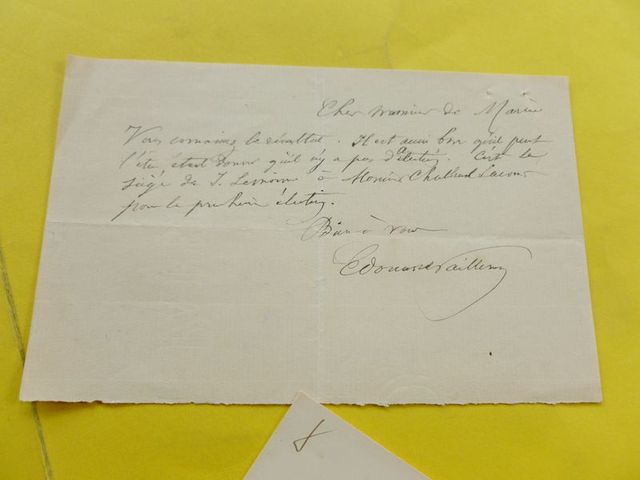 Cher monsieur de Marère
Vous connaissez le résultat. Il est aussi bon qu'il peut
l'être étant donné qu'il n'y a pas d'élection. C'est le
siège de J. Lemoinne à Monsieur Challemel Lacour
pour la prochaine élection.
Bien à vous
Edouard Pailleron